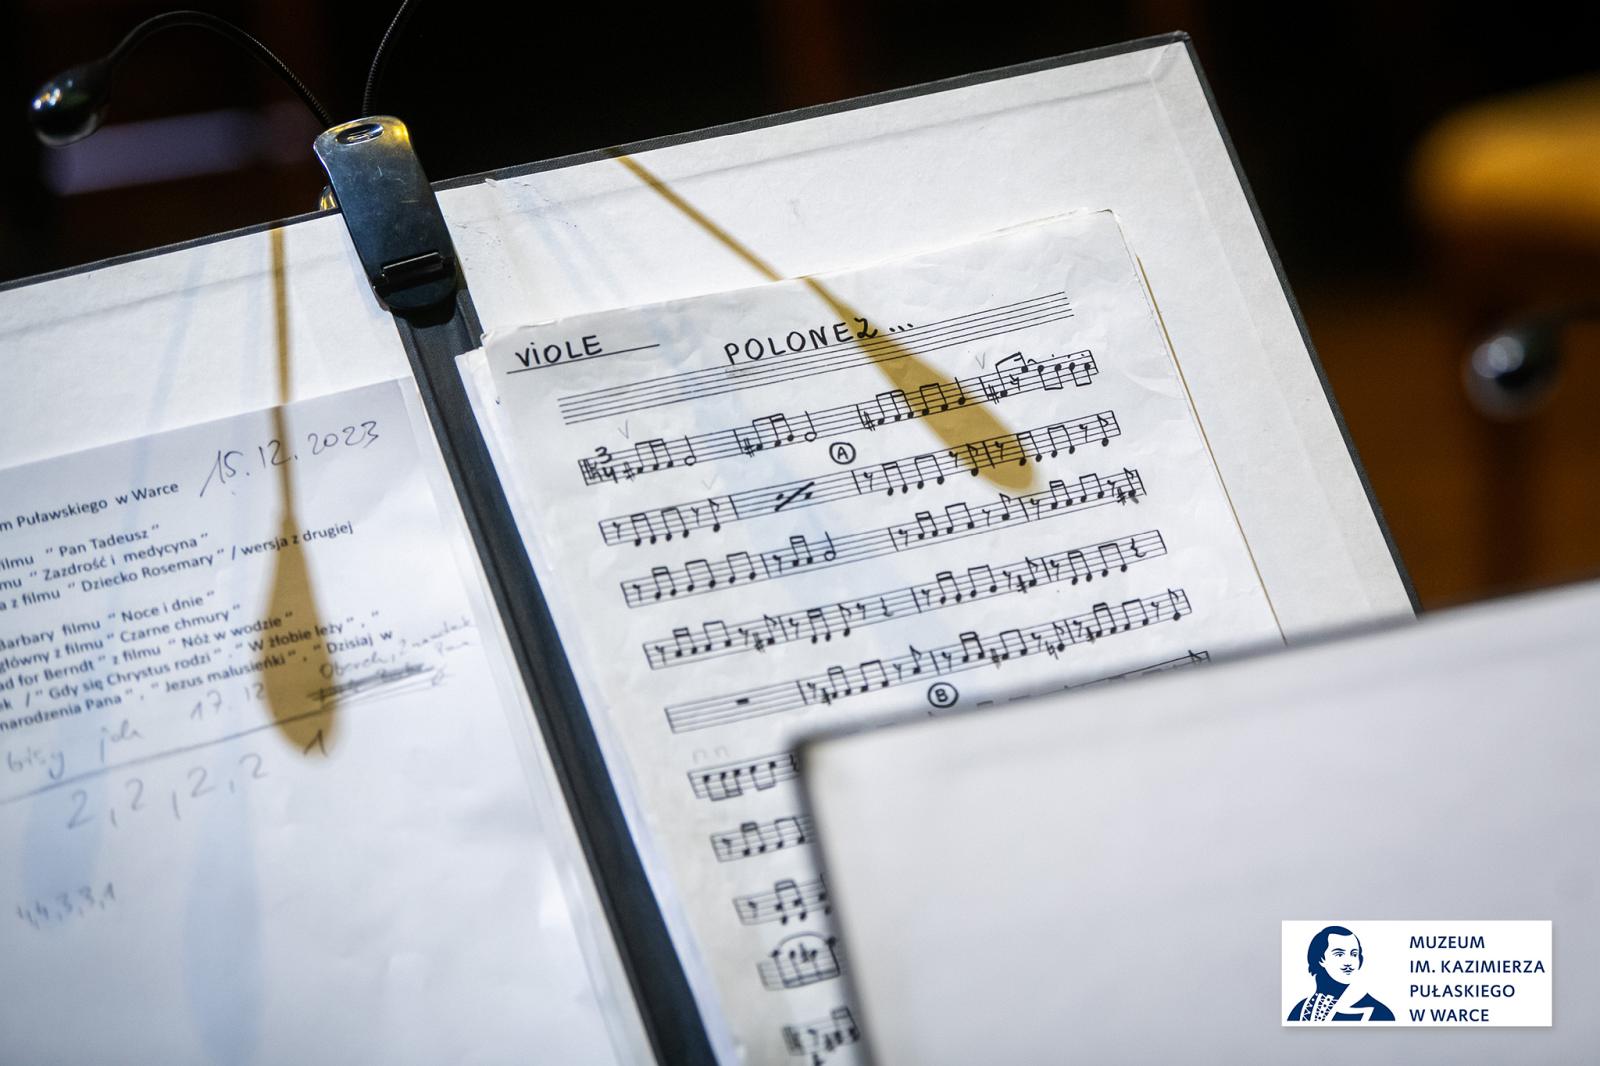 15.12.2023
m Puławskiego w Warce
filmu " Pan Tadeusz "
mu " Zazdrość i medycyna "
a z filmu " Dziecko Rosemary " / wersja z drugiej
Barbary filmu " Noce i dnie "
główny z filmu " Czarne chmury "
ad for Berndt " z filmu " Nóż w wodzie "
ek / " Gdy się Chrystus rodzi " . " W żłobie leży " . "
narodzenia Pana " . " Jezus malusieńki " . " Dzisiaj w
Oberek,
bisy jak 17.12
2,2,2,2 1
4,4,3,3,1
VIOLE POLONEZ...
3
4
A
B
MUZEUM
IM. KAZIMIERZA
PUŁASKIEGO
W WARCE